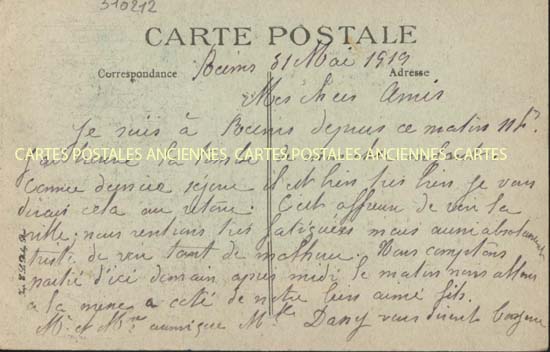 310212
CARTE POSTALE
Correspondance
Adresse
Reims 31 Mai 1919
Mes chers Amis
Je suis à Reims depuis ce matin 11h.
CARTES POSTALES ANCIENNES, CARTES POSTALES ANCIENNES, CARTES
J'ai trouvé la tombe de
comme dernier séjour il est bien très bien je vous
dirais cela au retour. C'est affreux de voir la
ville, nous rentrons très fatiguées mais aussi absolument
triste de voir tant de malheur. Nous comptons
partir d'ici demain après midi le matin nous allons
a la messe a coté de notre bien aimé fils.
M. et Mme M Dany vous disent